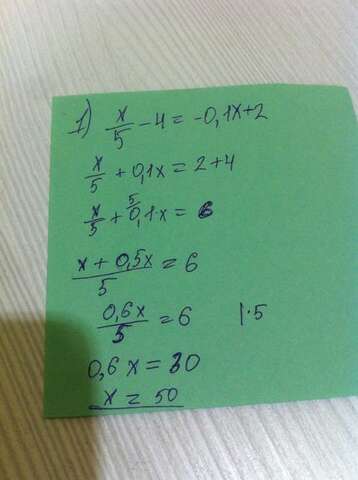 1) x/5 - 4 = -0,1x+2
x/5 + 0,1x = 2+4
x/5 + 5 0,1·x = 6
x + 0,5x/5 = 6
0,6x/5 = 6 |·5
0,6x = 30
x = 50